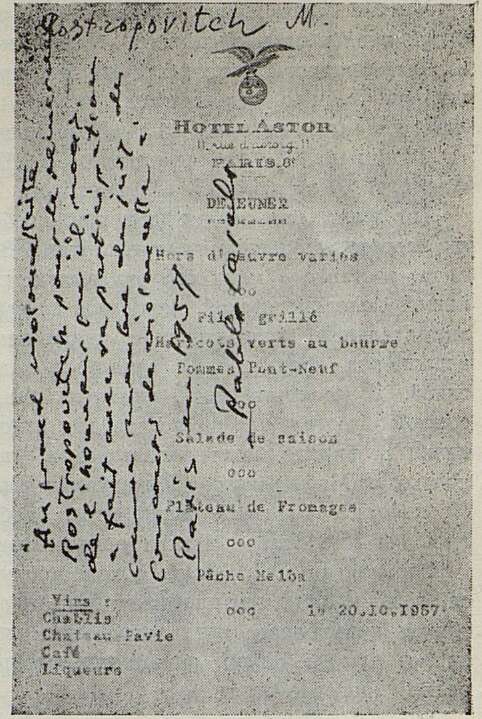 Rostropovitch M.
HOTEL ASTOR
11, rue d'Astorg, 11
PARIS.8e
DEJEUNER
Hors d'oeuvre variés
ooo
Filet grillé
Haricots verts au beurre
Pommes Pont-Neuf
ooo
Salade de saison
ooo
Plateau de Fromages
ooo
Pêche Melba
ooo le 20.10.1957
Vins :
Chablis
Chateau Pavie
Café
Liqueurs
Au grand violoncelliste
Rostropovitch pour le remercier
de l'honneur qu'il nous
a fait avec sa participation
comme membre du jury de
Concours de violoncelle.
Paris en 1957
Pablo Casals